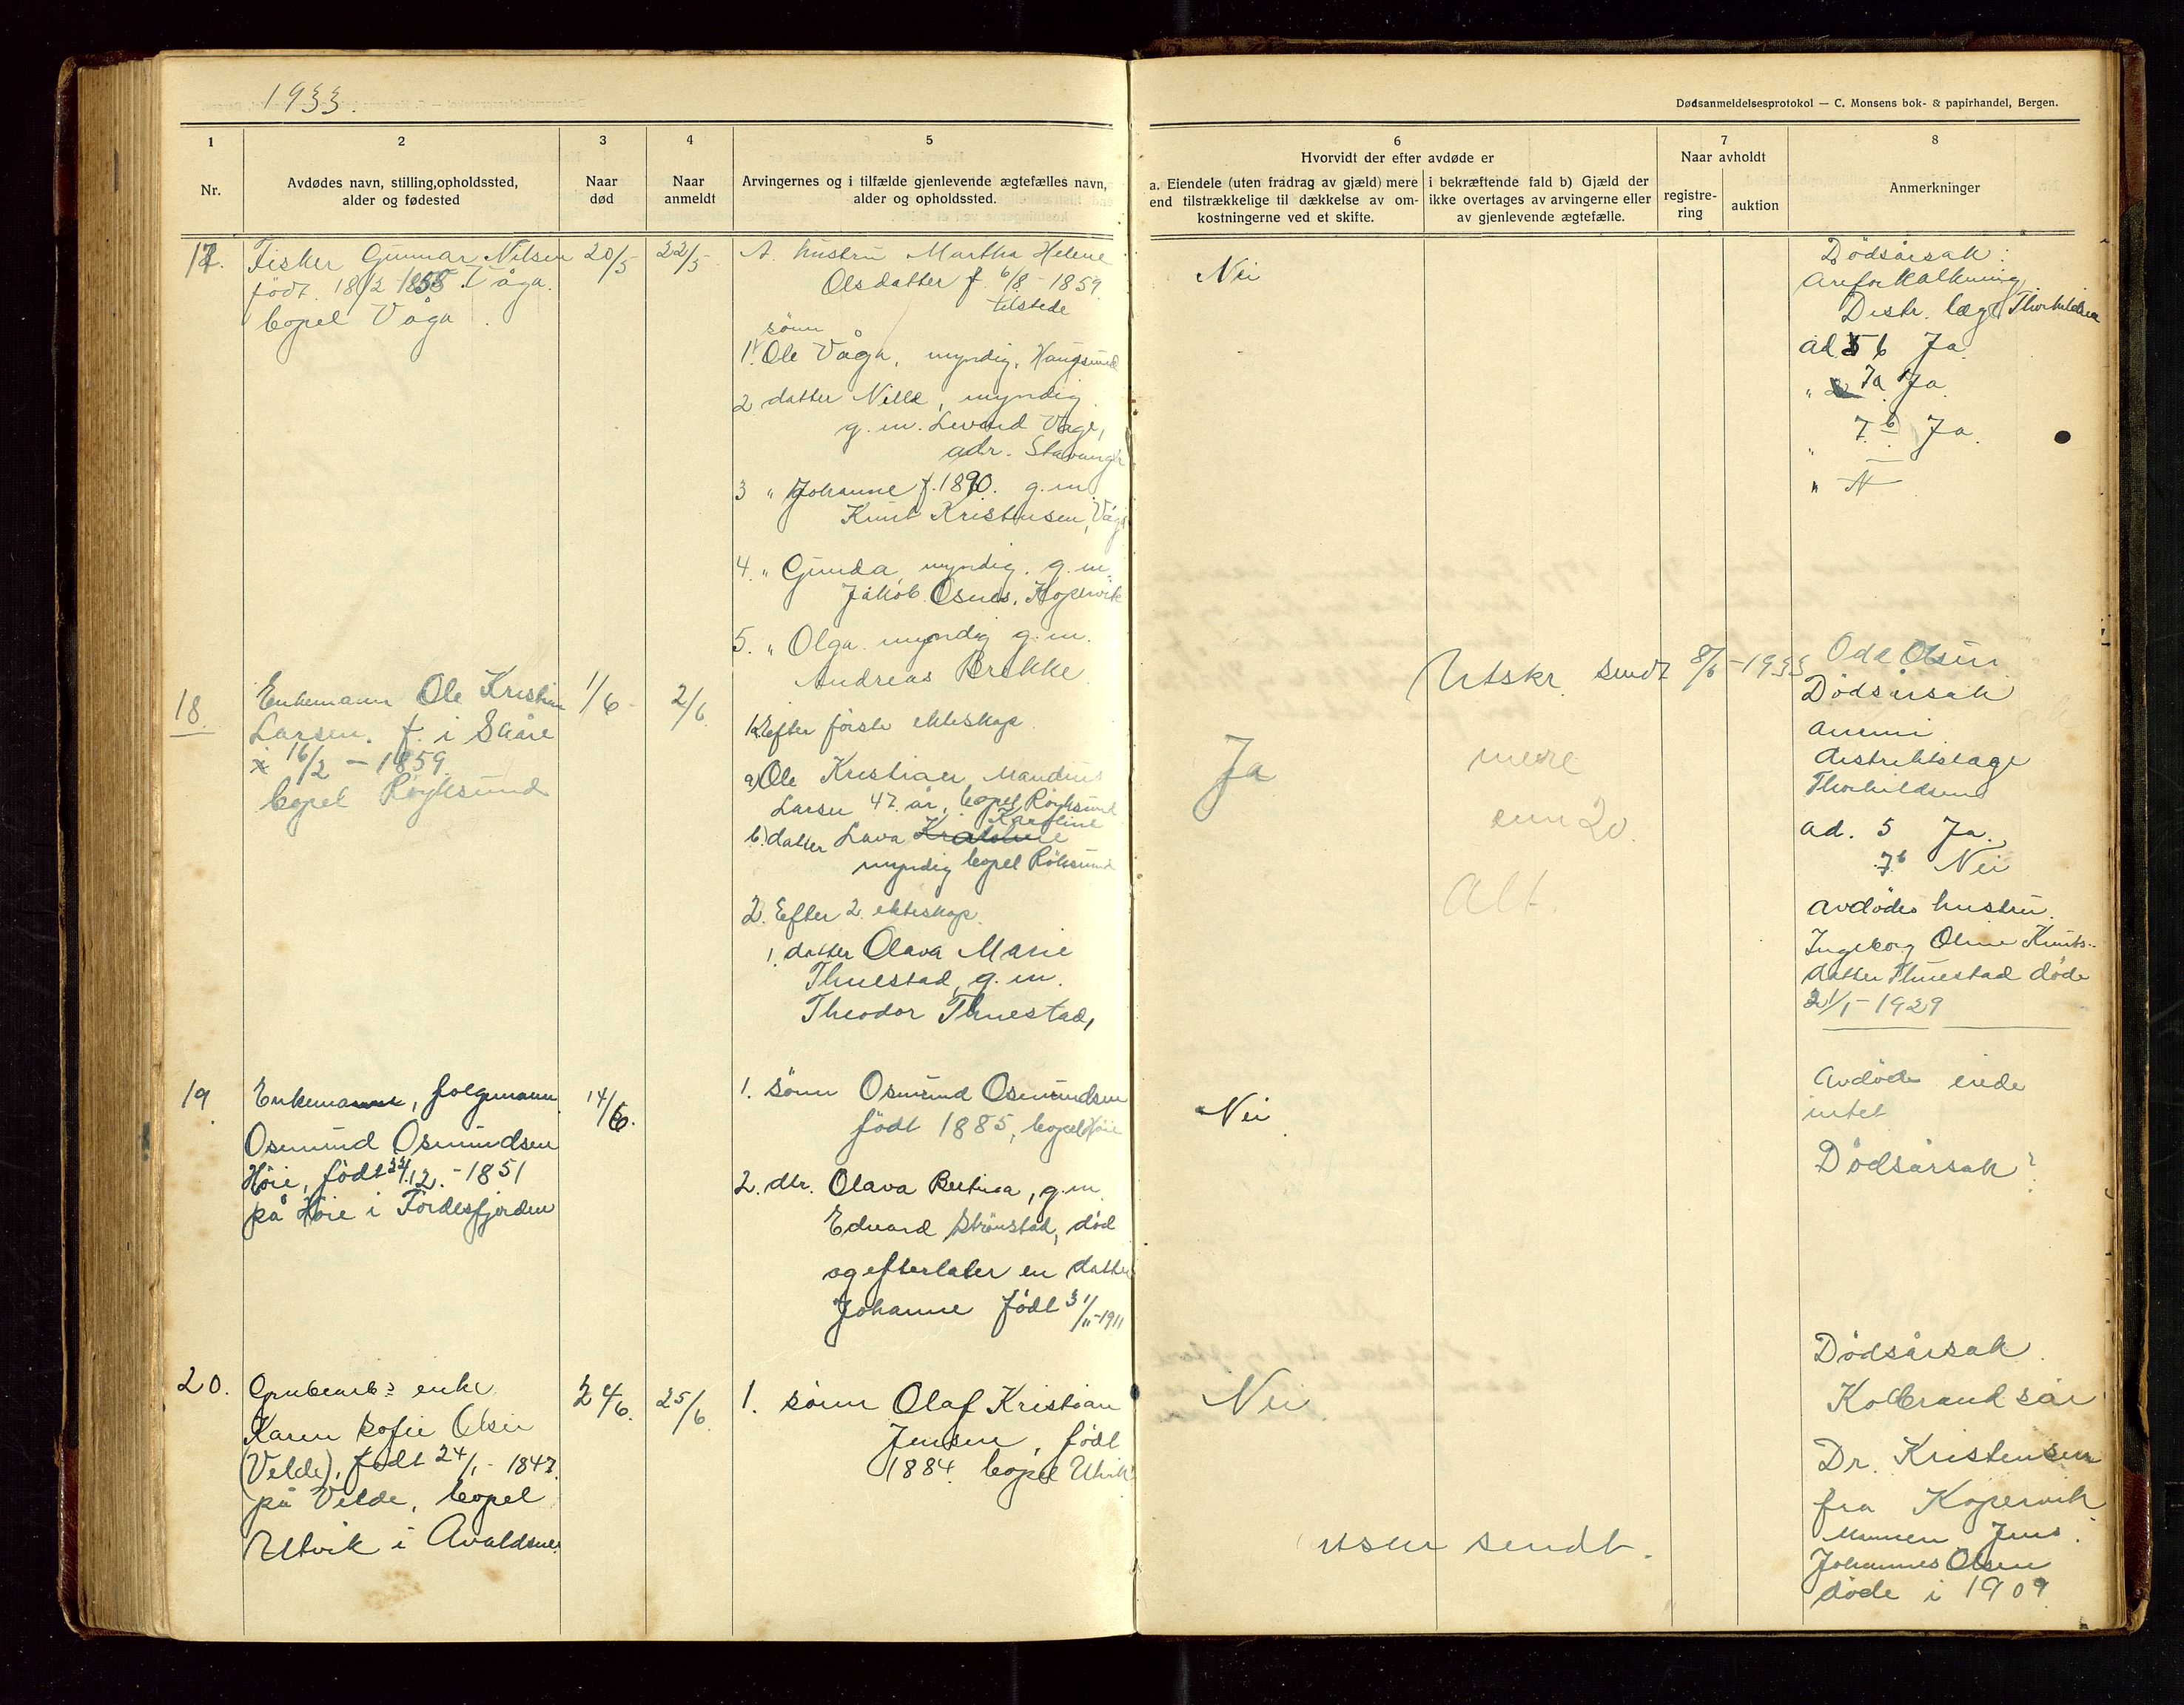 1933.
Dødsanmeldelsesprotokol — C. Monsens bok- & papirhandel, Bergen.
1
Nr.
2
Avdødes navn, stilling, opholdssted,
alder og fødested
3
Naar
død
4
Naar
anmeldt
5
Arvingernes og i tilfælde gjenlevende ægtefælles navn,
alder og opholdssted.
6
Hvorvidt der efter avdøde er
a. Eiendele (uten fradrag av gjæld) mere
end tilstrækkelige til dækkelse av om-
kostningerne ved et skifte.
i bekræftende fald b) Gjæld der
ikke overtages av arvingerne eller
av gjenlevende ægtefælle.
7
Naar avholdt
registre-
ring
auktion
8
Anmerkninger
17.
Fisker Gunnar Nilsen
født 18/2 1858 Våga.
bopel Våga
20/5
22/5
A. hustru Martha Helene
Olsdatter f. 6/8-1859.
tilstede
sønn
1. Ole Våga, myndig, Haugesund
2 datter Nille, myndig
g.m. Levard Våge,
adr. Stavanger
3 " Johanne f. 1890. g.m.
Knut Kristensen, Våga
4. " Gunda, myndig. g.m.
Jakob Osnes, Kopervik
5. " Olga myndig g.m.
Andreas Brekke
Nei
Dödsårsak:
Åreforkalkning
Distr. læge Thorkildsen
ad 5 6 Ja.
" 7a Ja
" 7 b Ja.
" N
18
Enkemann Ole Kristian
Larsen. f. i Skåre
16/2 - 1859.
bopel Röyksund
1/6
2/6
1. Efter förste ekteskap.
a) Ole Kristian Mandius
Larsen 47 år, bopel Röyksund
Karoline
b) datter Lava
myndig bopel Röksund
2. Efter 2. ekteskap.
1. datter Olava Marie
Thuestad, g.m.
Theodor Thuestad,
Utskr. sendt 8/6-1933
Ja
mere
enn 20
Alt.
Odd Olsen
Dödsårsak
Anemi
distriktslæge
Thorkildsen
ad. 5 Ja.
7b Nei
Avdödes hustru
Ingeborg Oline Knuts-
datter Thuestad döde
21/1-1929
19
Enkemann, folgemann
Osmund Osmundsen
Höie, födt 24/12.-1851
på Höie i Fördesfjorden
14/6.
1. sönn Osmund Osmundsen
födt 1885, bopel Höie
2. dtr. Olava Bertina, g.m.
Edvard Strönstad, död
og efterlater en datter
Johanne födt 31/11-1911
Nei
Avdöde eiede
intet
Dödsårsak?
20.
Grubearb: enke
Karen Sofie Olsen
(Velde), födt 24/1-1847.
på Velde, bopel
Utvik i Avaldsnes
24/6.
25/6.
1. sönn Olaf Kristian
Jensen, födt
1884 bopel Utvik
Nei
sendt.
Dödsårsak
Kolbrandsår
Dr. Kristensen
fra Kopervik
Mannen Jens
Johannes Olsen
döde i 1909